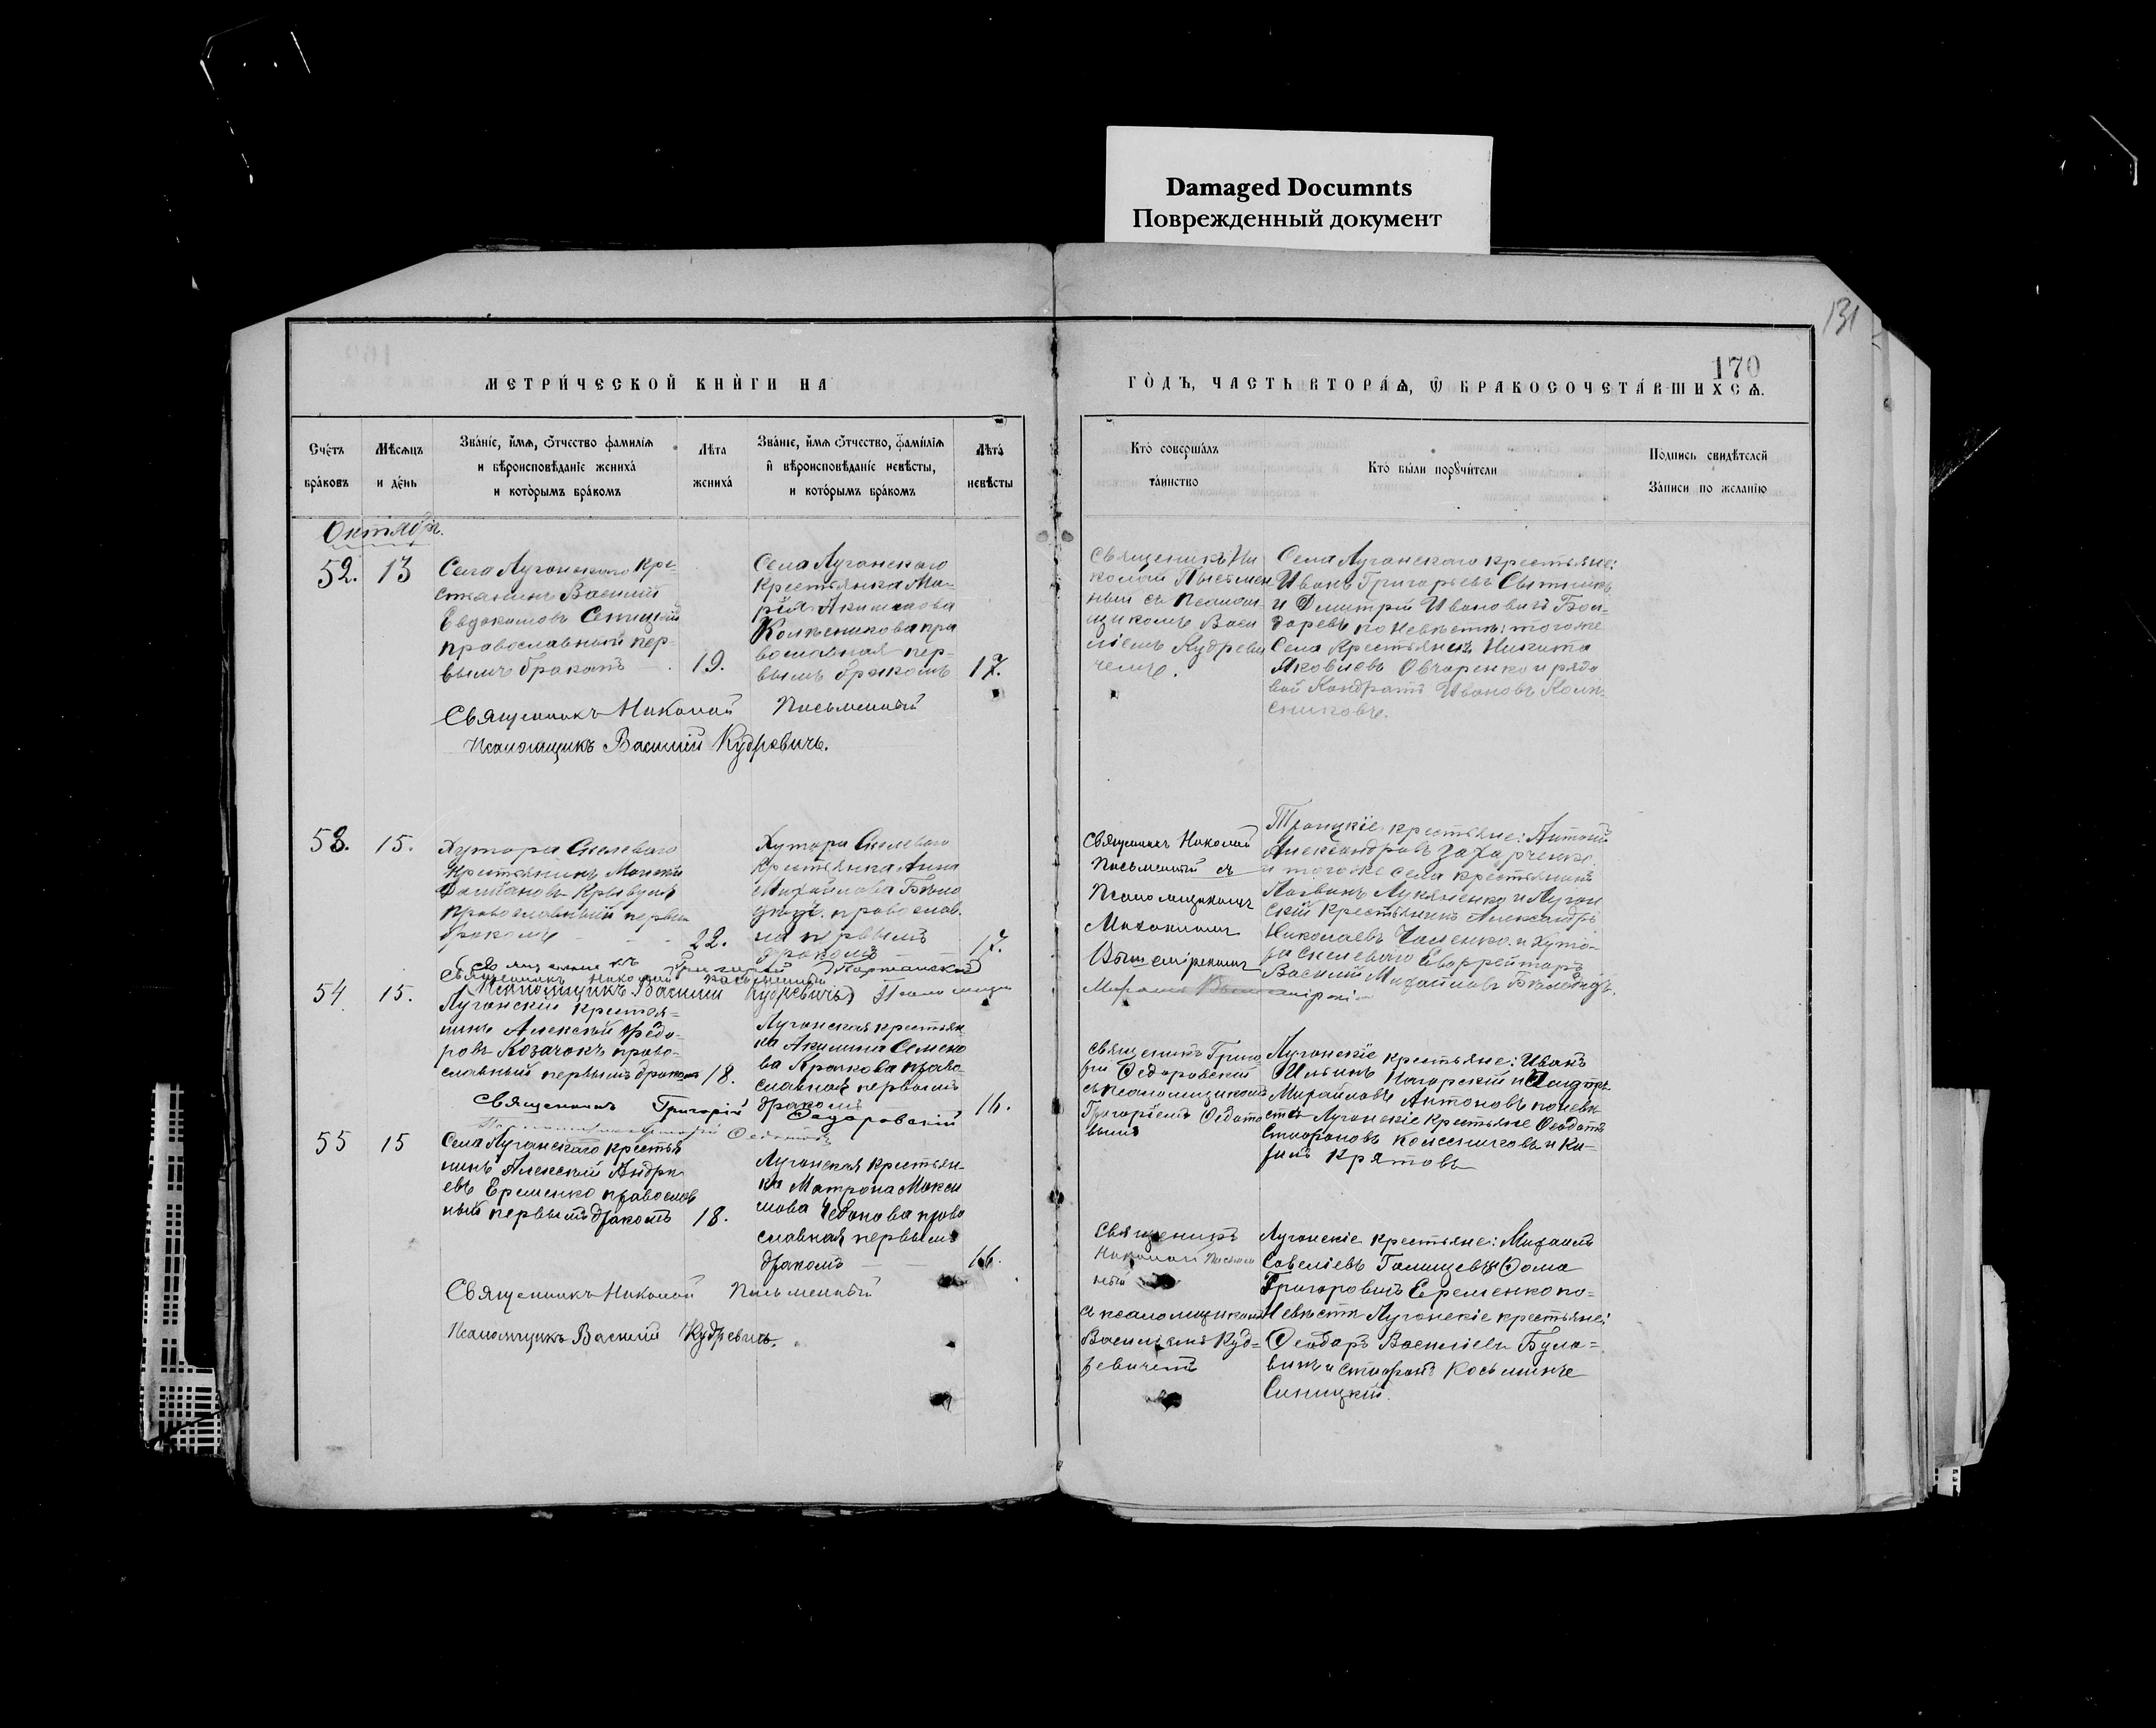 Damaged Documnts
Поврежденный документ
131
170
МЕТРИ́ЧЕСКОЙ КНИ́ГИ НА
ГО́ДЪ, ЧАСТЬ ВТОРА́Ѧ, Ѿ БРАКОСОЧЕТА́ВШИХСѦ.
Сче́тъ
бра́ковъ
Мѣсѧцъ
и де́нь
Зва́нїе, и́мѧ, ѿчество фамилїѧ
и вѣроисповѣданїе жениха́
и кото́рымъ бра́комъ
Лѣта
жениха́
Зва́нїе, и́мѧ ѿтчество, фами́лїѧ
и вѣроисповѣ́данїе невѣ́сты,
и кото́рымъ бра́комъ
Лѣта́
невѣсты
Кто̀ соверша́лъ
та́инство
Кто̀ бы́ли порꙋчи́тели
Подпись свидѣтелей
За́писи по жела́нїю
Октябрь.
52.
13
Села Луганскаго Кре-
стьянинъ Василій
Евдокимовъ
православный пер-
вымъ бракомъ
19.
Села Луганскаго
Крестьянка Ма-
рія Акимова
Колѣсникова пра
вославная пер-
вымъ бракомъ
17.
Священникъ Ни
колай Письмен
ный съ псалом-
щикомъ Васи
ліемъ Кудреви
чемъ.
Села Луганскаго крестьяне:
Иванъ Григорьевъ Сытникъ
и Димитрій Ивановичъ Бон-
даревъ по невѣстѣ: тогоже
Села Крестьянинъ Никита
Яковлевъ Овчаренко и рядо
вой Кондратъ Ивановъ Колѣ-
сниковъ.
Священникъ Николай Письменный
Псаломщикъ Василій Кудревичъ.
53.
15.
Хутора Скелеваго
Крестьянинъ
Криву
православный первы
бракомъ
22.
Хутора Скелеваго
Крестьянка Анна
Михайлова Бѣло
православ.
на первымъ
бракомъ
17.
Священникъ Николай
Письменный съ
Псаломщикомъ
Михаиломъ
Троицкіе крестьяне: Антоній
Александровъ Захарченко
и тогоже села крестьянинъ
Логвинъ Лукяненко и Луган
скій крестьянинъ Александръ
Николаевъ и Хуто-
ра Скелеваго Ефрейторъ
Василій Михайловъ
Священникъ Николай Письменный
Псаломщикъ Василій Кудревичъ
54
15.
Луганскій крестья-
нинъ Алексѣй Ѳедо-
ровъ Козачокъ право-
славный первымъ бракомъ
18.
Луганская крестьян
ка Акилина Семено
ва право-
славная первымъ
бракомъ
16.
Священникъ Григо
рій Ѳедоровскій
съ псаломщикомъ
Григоріемъ Ѳедото
вымъ
Луганскіе крестьяне: Иванъ
Ильинъ Нагорскій и
Михайловъ Антоновъ по невѣ
стѣ Луганскіе крестьяне Ѳеодотъ
Стефановъ Колесниковъ и Ки-
Священникъ Григорій Ѳедоровскій
55
15
Села Луганскаго крестья
нинъ Алексѣй Андре
евъ Еременко православ
ный первымъ бракомъ
18.
Луганская крестьян-
ка Матрона Макси
мова право
славная первымъ
бракомъ
16.
Священникъ
Николай Письмен
ный
съ псаломщикомъ
Василіемъ Куд-
ревичемъ
Луганскіе крестьяне: Михаилъ
Савеліевъ Ѳома
Григоровичъ Еременко по-
невѣстѣ Луганскіе крестьяне:
Ѳеодоръ Василіевъ Була-
винъ и Стефанъ Косьминъ
Синицкій.
Священникъ Николай Письменный
Псаломщикъ Василій Кудревичъ.